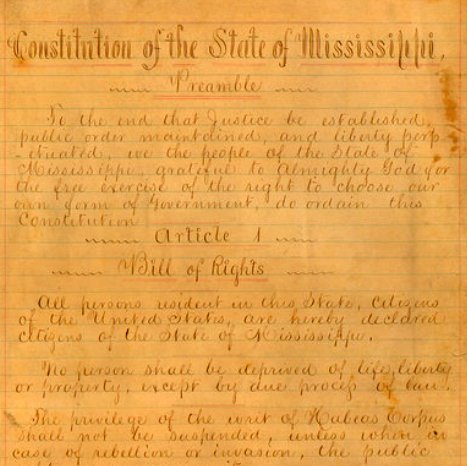 Constitution of the State of Mississippi.
Preamble
To the end that Justice be established,
public order maintained, and liberty perp
-etuated, we the people of the State of
Mississippi, grateful to Almighty God for
the free exercise of the right to choose our
own form of Government, do ordain this
Constitution
Article 1
Bill of Rights
All persons resident in this State, Citizens
of the United States, are hereby declared
citizens of the State of Mississippi.
No person shall be deprived of life, liberty
or property, except by due process of law.
The privilege of the writ of Habeas Corpus
shall not be suspended, unless when in
case of rebellion or invasion, the public